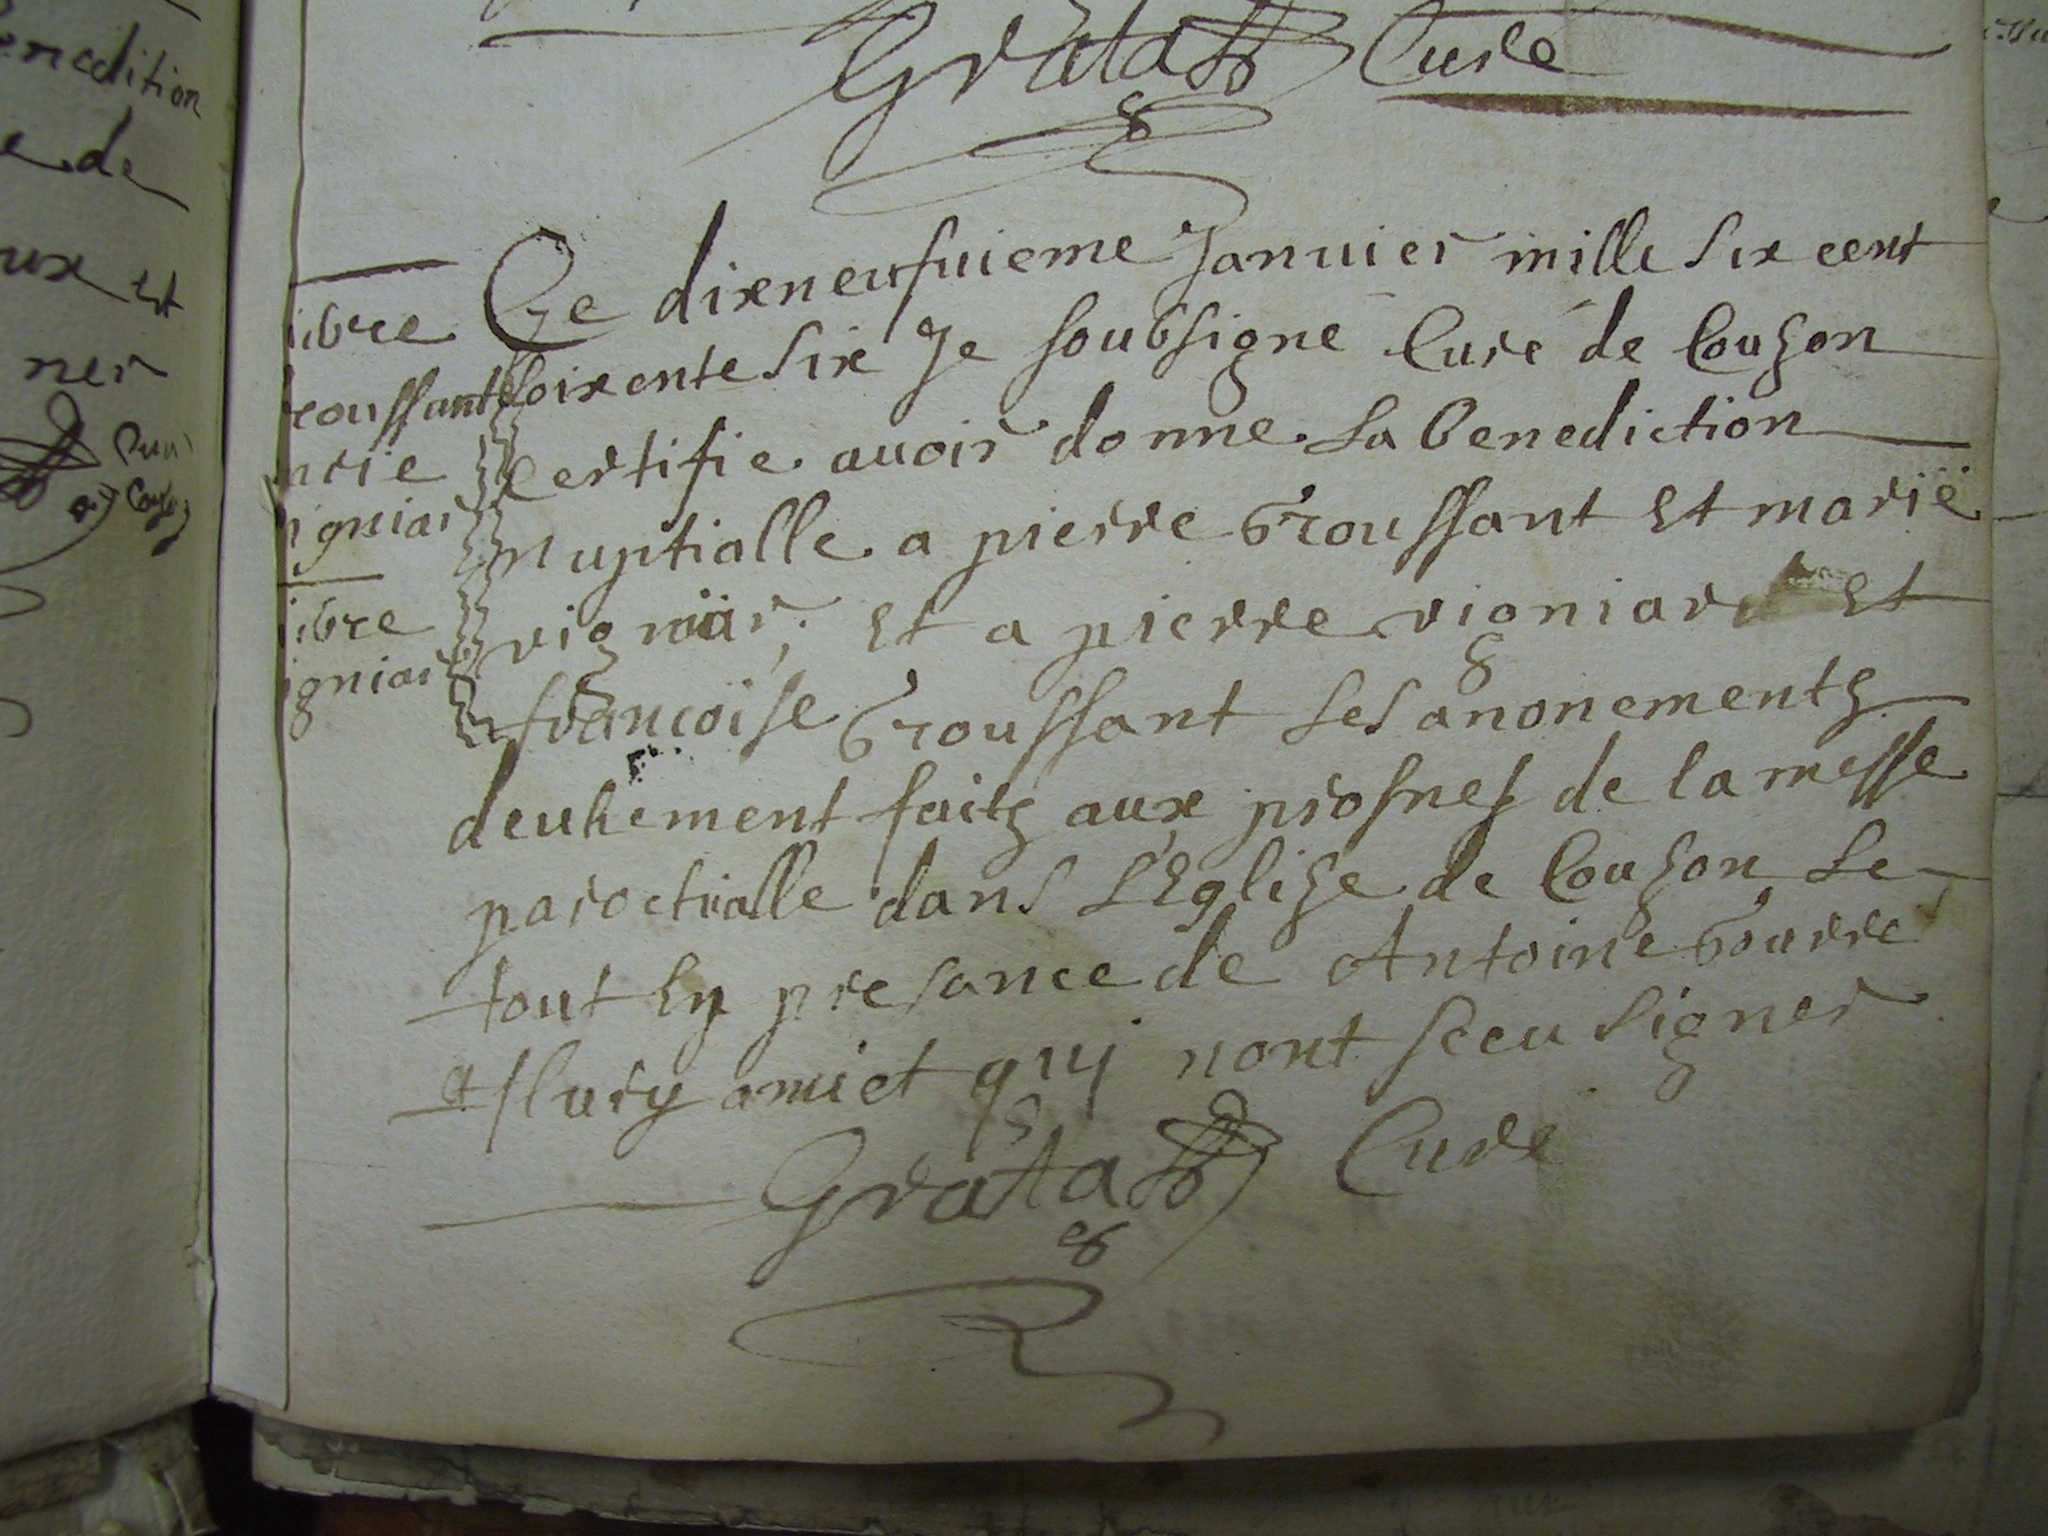 enedition
e de
ux Et
ner
Gratass Curé
ibre
roussant
arie
igniar
ibre
igniar
Ce dixneufuieme Januier mille six cent
soixente six Je soubsigne Curé de Couzon
Certifie auoir donne La benediction
nuptialle a pierre troussant Et marië
vigniär, Et a pierre vigniard Et
francoïse troussant Les anonements
deuhement faitz aux prosnes de la messe
paroctiialle dans L'Eglize de Couzon Le
tout En presance de Antoine bourre
et flury amiet quj nont sceu signer
Gratass Curé